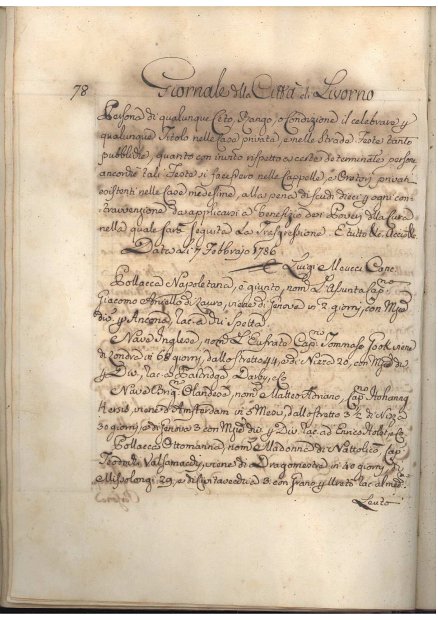 78 Giornale della Città di Livorno
Persona di qualunque Ceto, Rango, o Condizione il celebrare p
qualunque Titolo nelle Case private, e nelle Strade Feste tanto
pubbliche, quanto con invito rispetto a certe determinate persone
ancorchè tali Feste si facessero nelle Cappelle, e Oratorj privati
esistenti nelle Case medesime, alla pena di Scudi dieci p ogni con:
travvenzione da applicarsi a benefizio dei Poveri della Cura
nella quale sarà seguita la Trasgressione. E tutto &c.
Data li 7 Febbrajo 1786
Luigi Meucci Canc
Pollacca Napoletana, è giunto, nom L'Assunta Cap.no
Giacomo Aniello di Lauro, viene di Genova in 2 giorni, con Mrci
div. p Ancona, rac. a
Nave Inglese, nom L'Eufrate Cap.no Tommaso Gook viene
di Londra in 68 giorni, dallo stretto 44, e di Nizza 20, con Mrci div
p Div. rac. a Darby, &c
Nave Olandese, nom Matteo Adriano, Cap. Johannes
viene d'Amsterdam in 5 Mesi, dallo stretto 3½ di Nizza
30 giorni, e di Genova 2 con Mrci div. p Div. rac. ad &c
Pollacca Ottomanna, nom Madonna di Cap.
Teodori Valsamachi, viene di Dragomestre in 40 giorni
Missolongi 29, e di 3. con Grano
Leuto